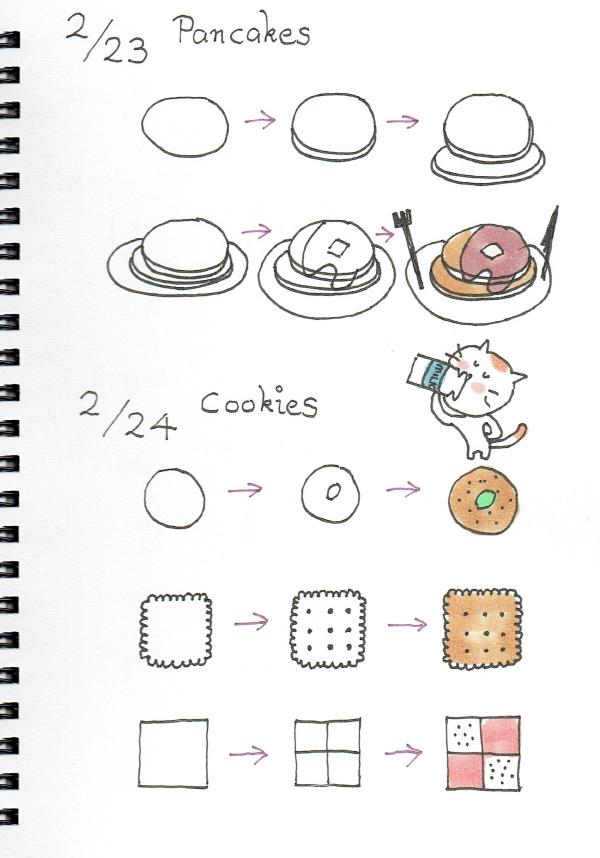 2/23 Pancakes
MILK
2/24 Cookies